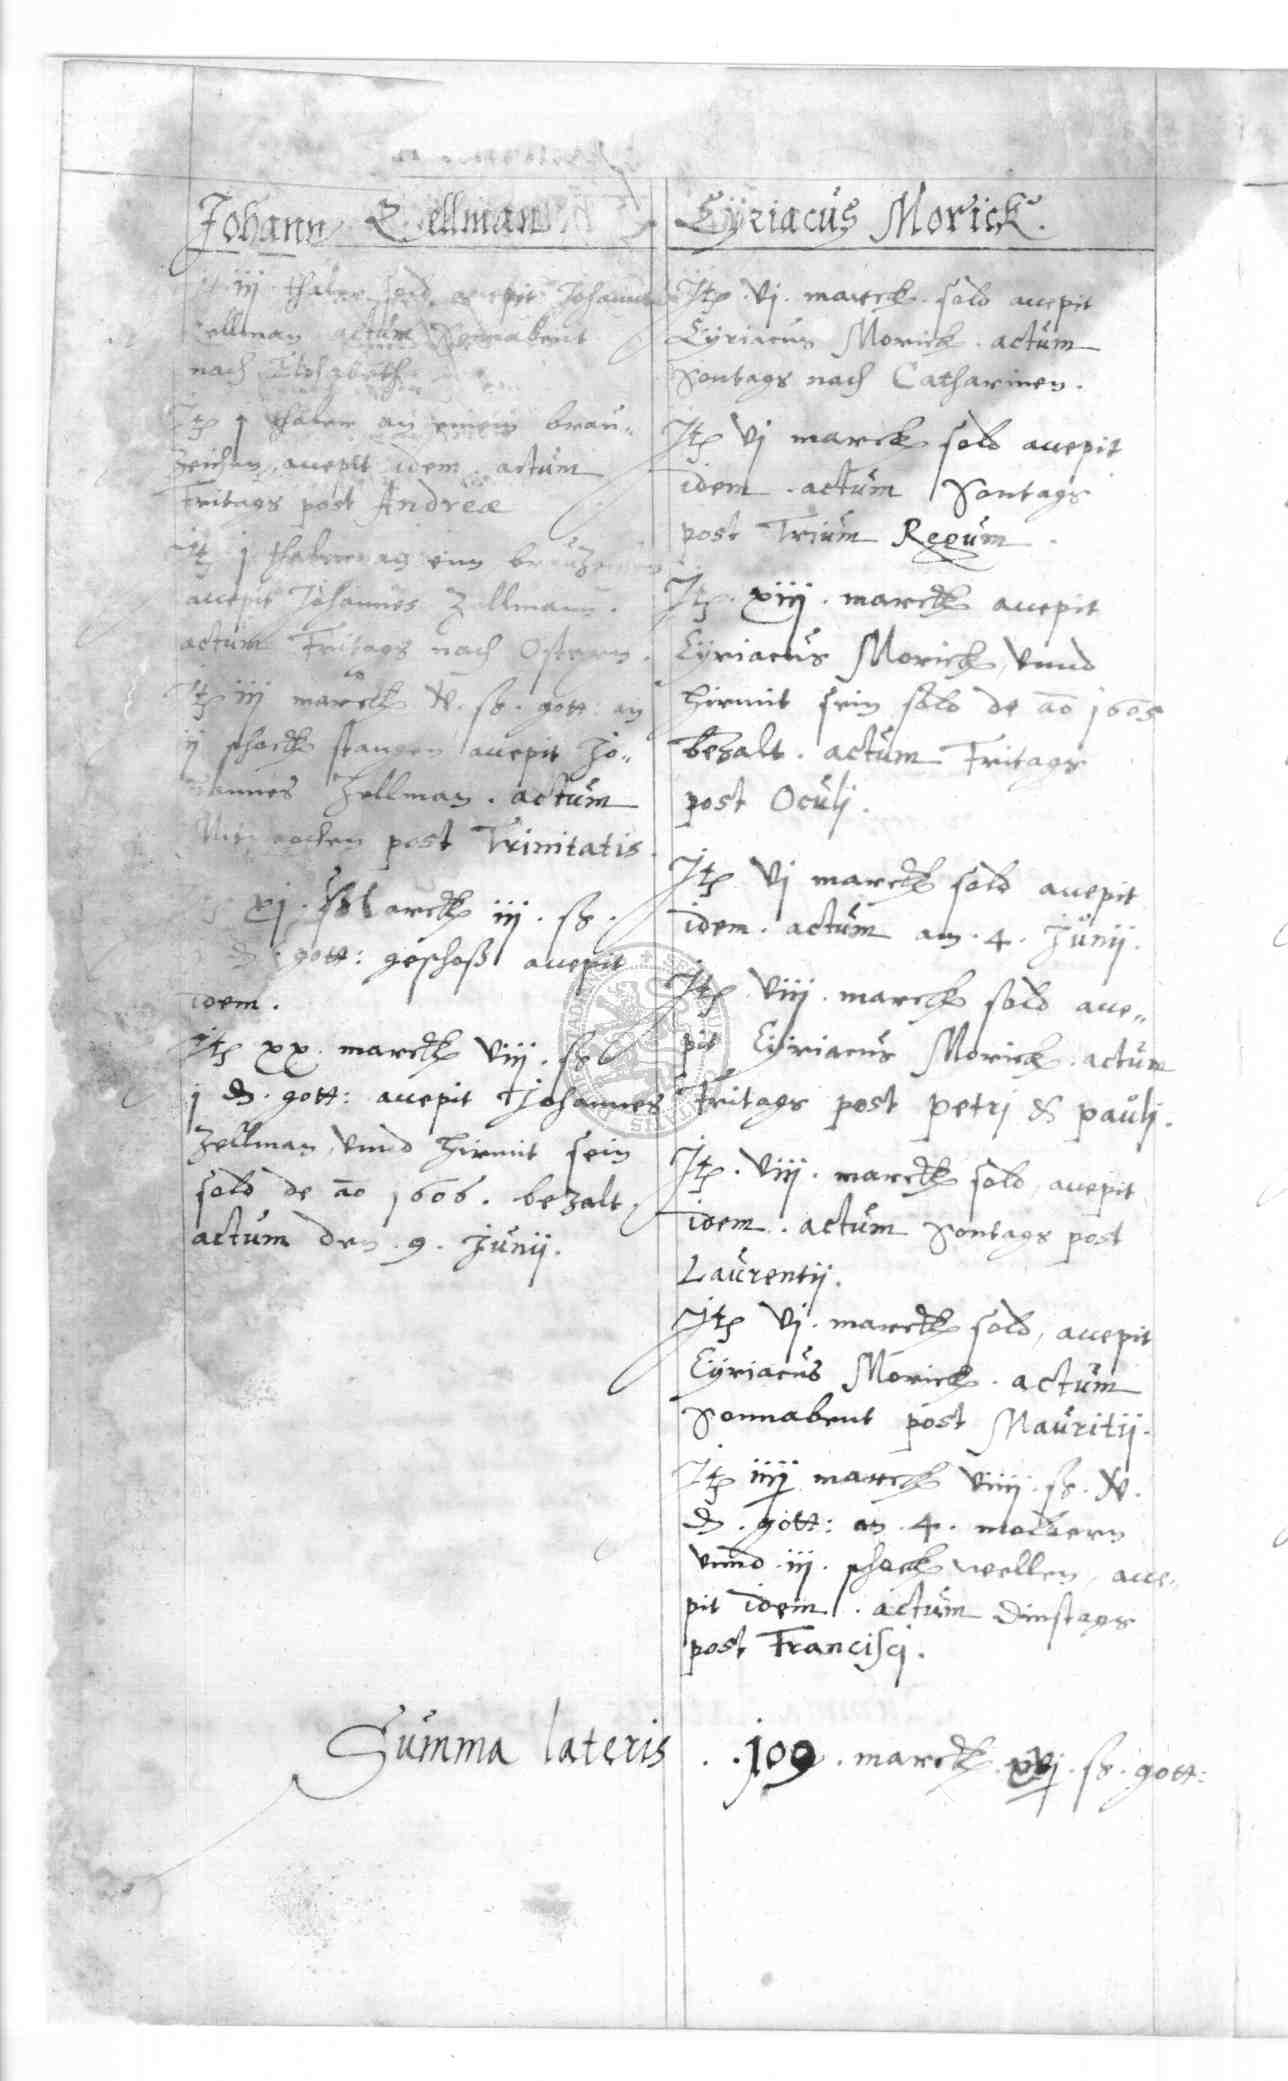 Johann Zellman
iij thaler sold accepit Johann
Zellman actum Sonnabent
nach Elisabeth
Jtem j thaler an einem brau-
zeichen, accepit idem. actum
Fritags post Andreæ
Jtem j thaler an eim brauzeichen
accepit Johannes Zellmann.
actum Fritags nach Ostern.
Jtem iij marck x. ß. gott: an
ij schock stangen accepit Jo-
hannes Zellman. actum
Mitwochen post Trinitatis.
xj. marck iij. ß.
₰. gott: geschoß accepit
idem.
Jtem xx. marck viij. ß
j ₰. gott: accepit Johannes
Zellman, vnnd hirmit sein
sold de ao 1606. bezalt.
actum den. 9. Junij.
Cyriacus Morick.
Jtem. vj. marck. sold accepit
Cyriacus Morick. actum
Sontags nach Catharinen.
Jtem vj marck sold accepit
idem. actum Sontags
post Trium Regum.
Jtem. xiij. marck accepit
Cyriacus Morick, vnnd
hirmit sein sold de ao 1605
bezalt. actum Fritags
post Oculj.
Jtem vj marck sold accepit
idem. actum am. 4. Junij.
Jtem viij. marck sold acce-
pit Cyriacus Morick. actum
Fritags post petrj & paulj.
Jtem. viij. marck sold, accepit
idem. actum Sontags post
Laurentij.
Jtem vj. marck sold, accepit
Cyriacus Morick. actum
Sonnabent post Mauritij.
Jtem iiij marck viiij. ß. x.
₰. gott: an. 4. maldern
vnnd. iij. schock wellen, acce-
pit idem. actum Dinstags
post Francisci.
Summa lateris . . 109. marck. ß. gott: